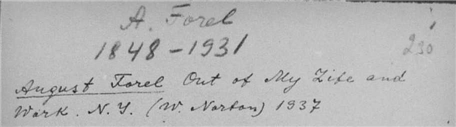 A. Forel
1848-1931
230
August Forel Out of My Life and
Work. N.Y. (W. Norton) 1937